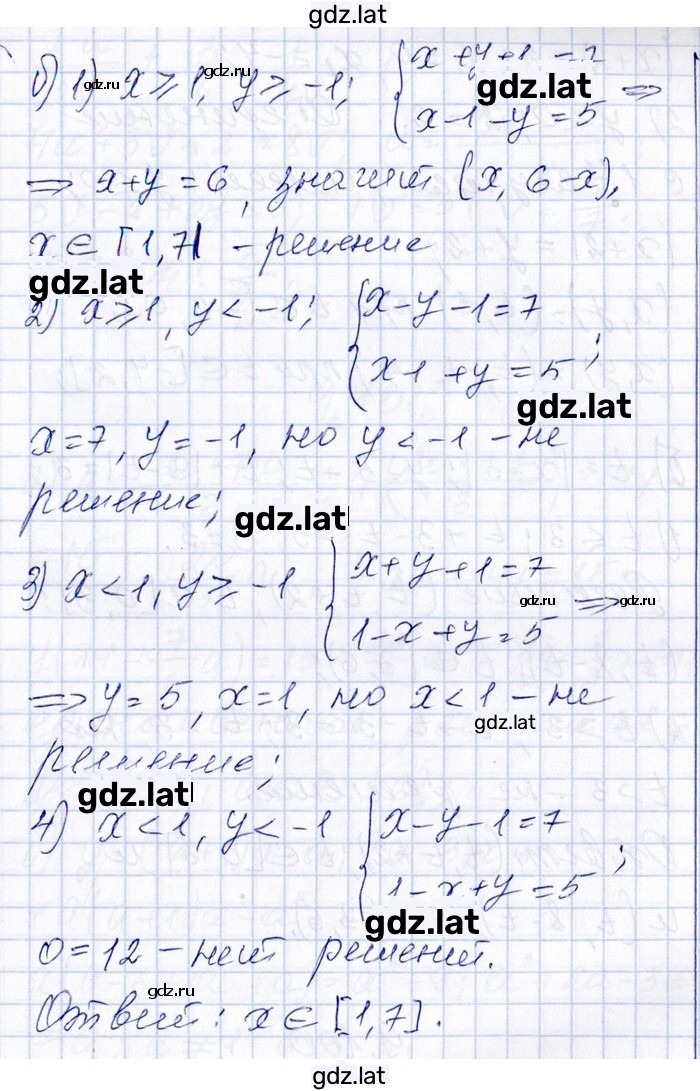 gdz.lat
б) 1) x ⩾ 1, y ⩾ -1; { x + y + 1 = 7
x - 1 - y = 5 ⇒
gdz.ru gdz.ru gdz.lat
⇒ x + y = 6, значит (x, 6-x),
x ∈ [1, 7] - решение
gdz.lat
2) x ⩾ 1, y < -1; { x - y - 1 = 7
x - 1 + y = 5 ;
gdz.lat
x = 7, y = -1, но y < -1 - не
решение;
gdz.lat
3) x < 1, y ⩾ -1 { x + y + 1 = 7
1 - x + y = 5 ⇒
gdz.ru gdz.ru
⇒ y = 5, x = 1, но x < 1 - не
gdz.lat
решение;
gdz.lat
4) x < 1, y < -1 { x - y - 1 = 7
1 - x + y = 5 ;
gdz.lat
0 = 12 - нет решений.
gdz.ru
Ответ: x ∈ [1, 7].
gdz.ru
gdz.lat